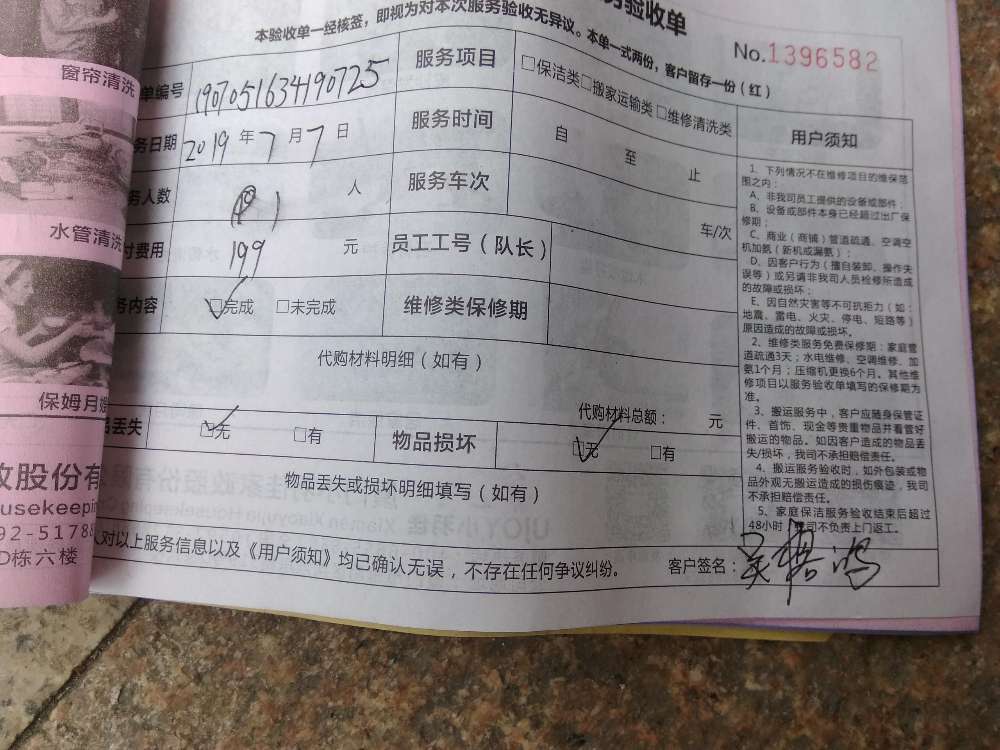 务验收单
本验收单一经核签，即视为对本次服务验收无异议。本单一式两份，客户留存一份（红）
No.1396582
窗帘清洗
单编号 1907051634190725
服务项目 □保洁类□搬家运输类□维修清洗类
用户须知
务日期 2019年7月7日
服务时间 自 至 止
务人数 人
服务车次 车/次
水管清洗
付费用 199 元
员工工号（队长）
务内容 □完成 □未完成
维修类保修期
1、下列情况不在维修项目的维保范
围之内：
A、非我司员工提供的设备或部件；
B、设备或部件本身已经超过出厂保
修期；
C、商业（商铺）管道疏通、空调空
机加氨（新机或漏氨）；
D、因客户行为（擅自装卸、操作失
误等）或另请非我司人员检修所造成
的故障或损坏；
E、因自然灾害等不可抗拒力（如：
地震、雷电、火灾、停电、短路等）
原因造成的故障或损坏。
2、维修类服务免费保修期：家庭管
道疏通3天；水电维修、空调维修、加
氨1个月；压缩机更换6个月。其他维
修项目以服务验收单填写的保修期为
准。
3、搬运服务中，客户应随身保管证
件、首饰、现金等贵重物品并看管好
搬运的物品。如因客户造成的物品丢
失/损坏，我司不承担赔偿责任。
4、搬运服务验收时，如外包装或物
品外观无搬运造成的损伤痕迹，我司
不承担赔偿责任。
5、家庭保洁服务验收结束后超过
48小时，我司不负责上门返工。
代购材料明细（如有）
代购材料总额： 元
保姆月嫂
品丢失 □无 □有
物品损坏 □无 □有
物品丢失或损坏明细填写（如有）
政股份有
ousekeepin
92-51788
D栋六楼
人对以上服务信息以及《用户须知》均已确认无误，不存在任何争议纠纷。
客户签名：